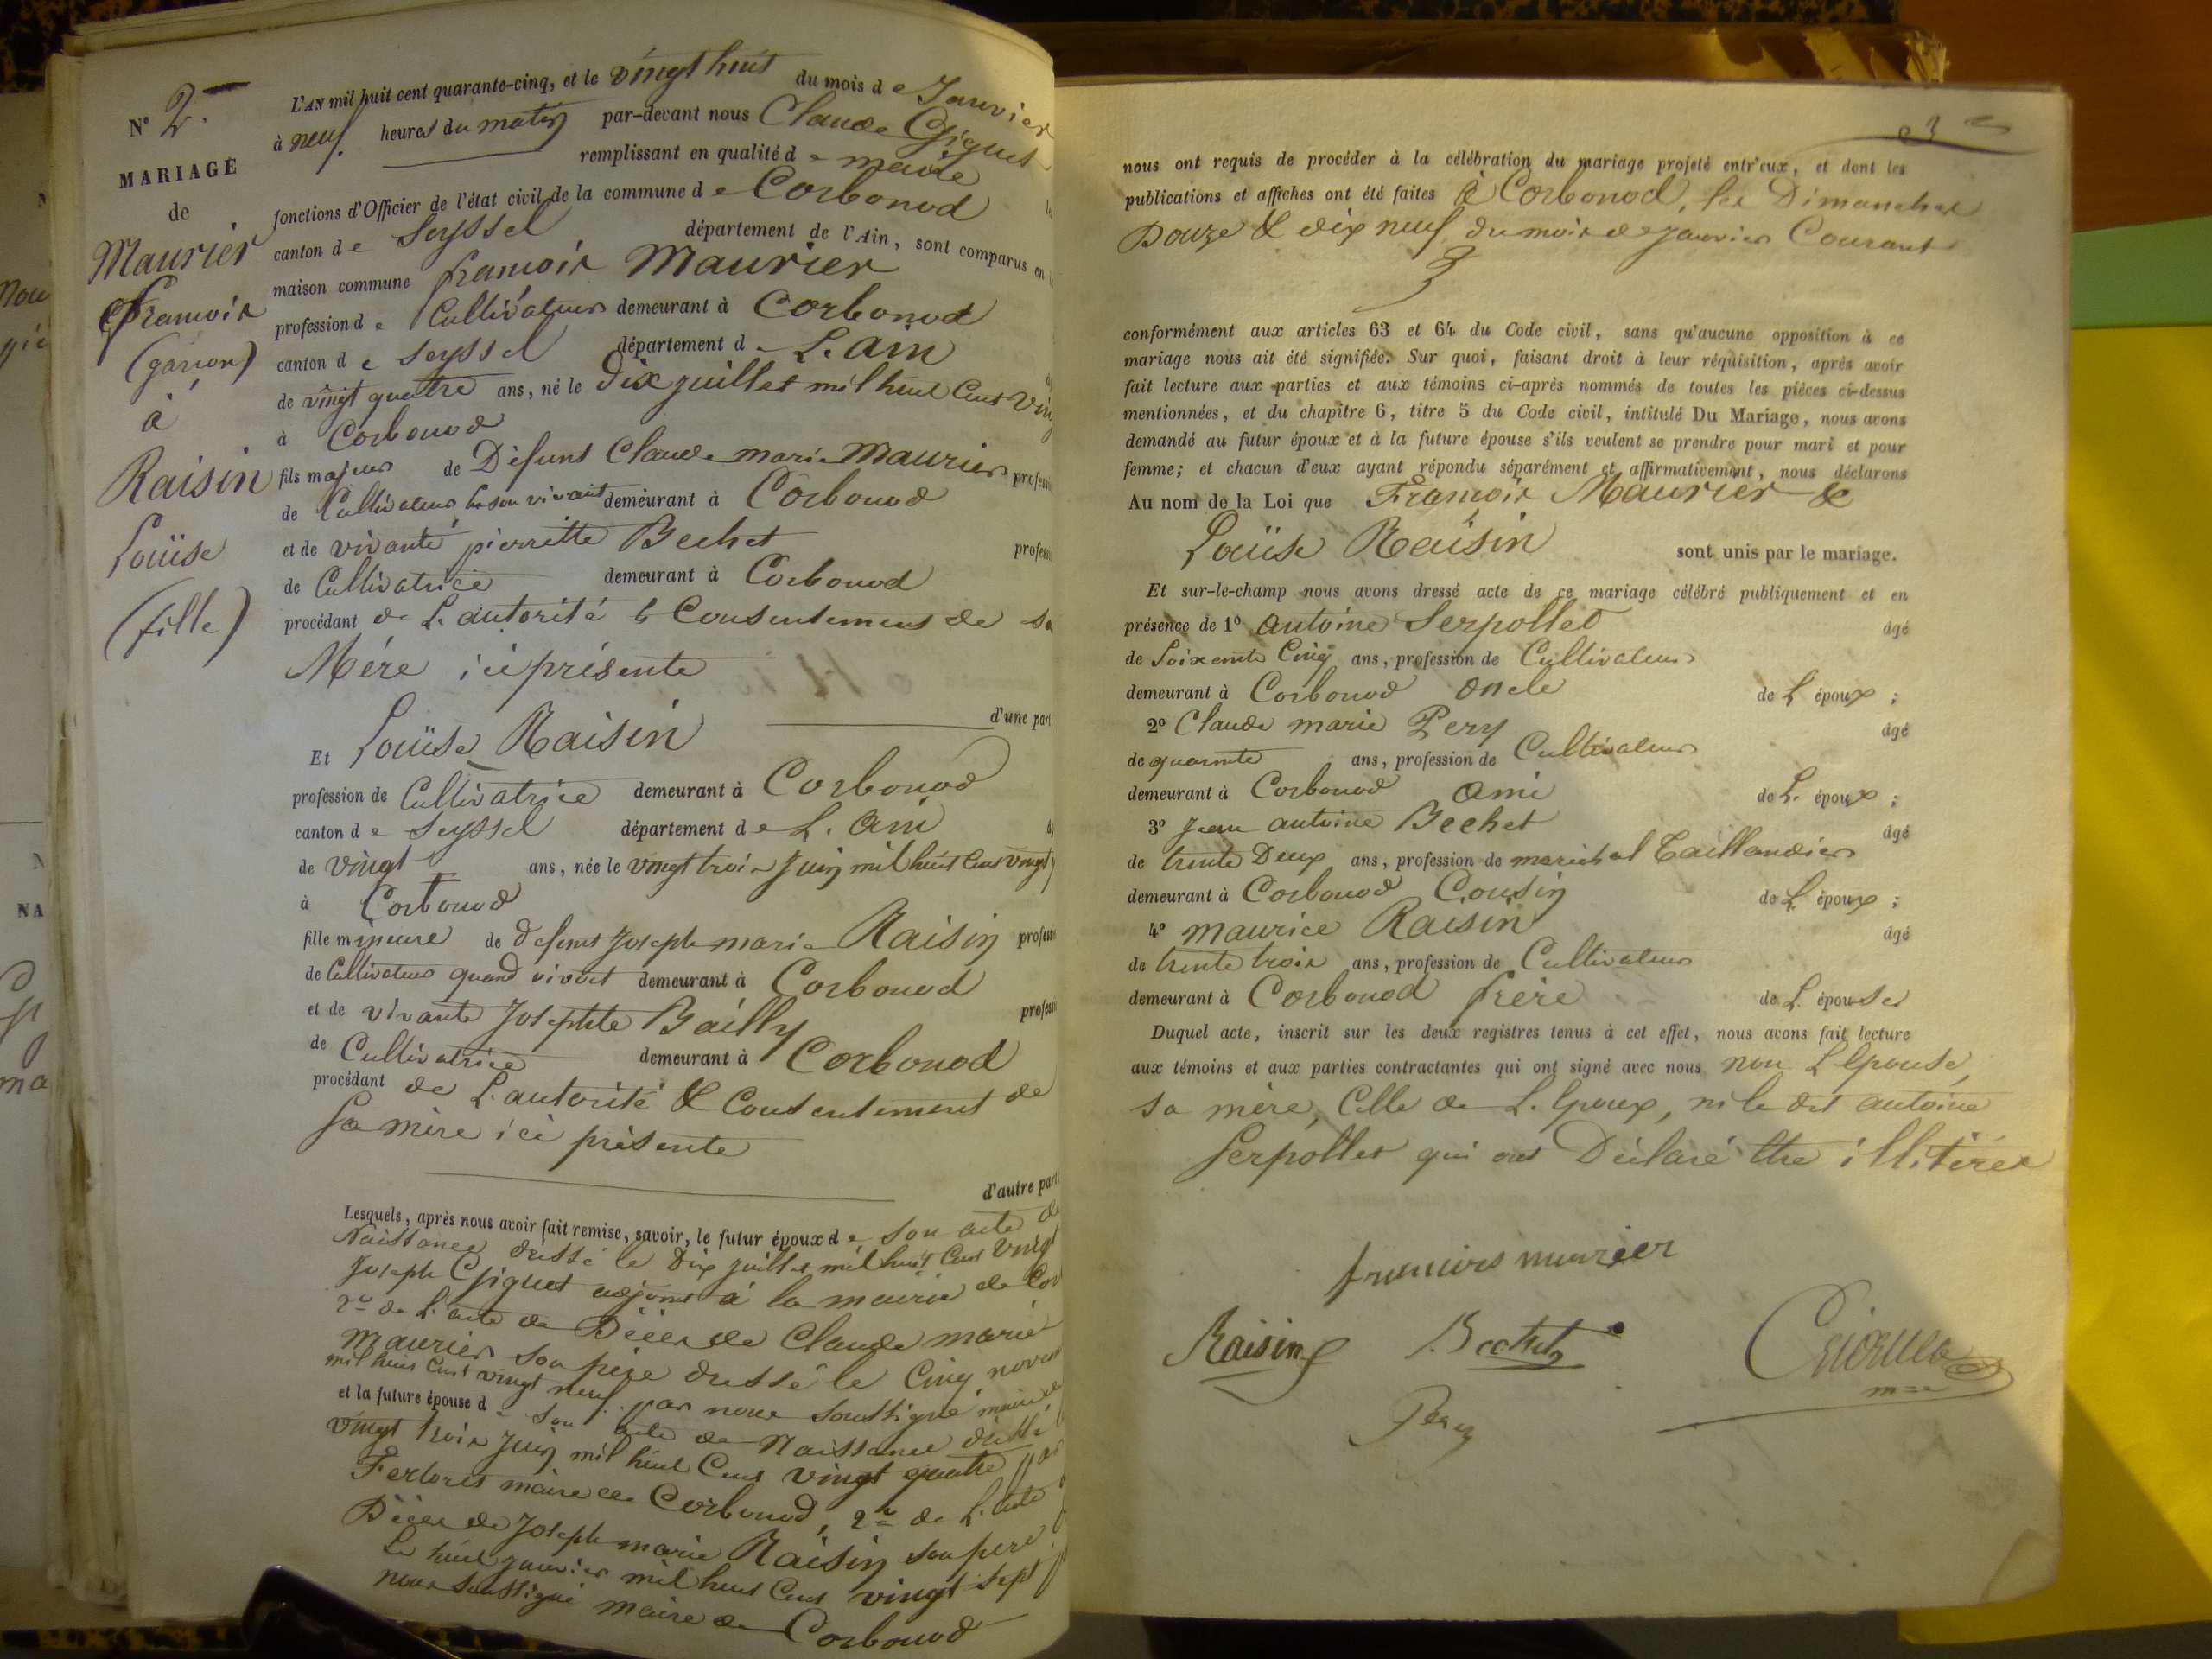 N° 2.
MARIAGE
de
Maurier
François
(garçon)
à
Raisin
Louïse
(fille)
L'AN mil huit cent quarante-cinq, et le vingt huit du mois de Janvier
à neuf heures du matin par-devant nous Claude Giguet
remplissant en qualité de maire
fonctions d'Officier de l'état civil de la commune de Corbonod
canton de Seyssel département de l'Ain, sont comparus en
maison commune françois Maurier
profession de Cultivateur demeurant à Corbonod
canton de Seyssel département de L'ain
de vingt quatre ans, né le Dix juillet mil huit Cent
à Corbonod
fils majeur de Défunt Claude marie Maurier
de Cultivateur de son vivant demeurant à Corbonod
et de vivante pierrette Bechet
de Cultivatrice demeurant à Corbonod
procédant de L'autorité & Consentement de sa
Mére ici présente
d'une part
Et Louïse Raisin
profession de Cultivatrice demeurant à Corbonod
canton de Seyssel département de L'ain
de vingt ans, née le vingt trois Juin mil huit Cent vingt
à Corbonod
fille mineure de défunt Joseph marie Raisin
de Cultivateur quand vivoit demeurant à Corbonod
et de vivante Josephte Bailly
de Cultivatrice demeurant à Corbonod
procédant de L'autorité & Consentement de
sa mère ici présente
d'autre part
Lesquels, après nous avoir fait remise, savoir, le futur époux de son acte de
Naissance dressé le Dix juillet mil huit Cent vingt
Joseph Giguet adjoint à la mairie de
2° de L'acte de Décès de Claude marie
Maurier son père dressé le Cinq
mil huit Cent vingt neuf par nous soussigné maire
et la future épouse de son acte de Naissance dressé
vingt trois Juin mil huit Cent vingt quatre par
maire de Corbonod, 2° de L'acte
Décès de Joseph marie Raisin son père
Le huit janvier mil huit Cent vingt sept
nous soussigné maire de Corbonod
3
nous ont requis de procéder à la célébration du mariage projeté entr'eux, et dont les
publications et affiches ont été faites à Corbonod, les Dimanches
Douze & dix neuf du mois de janvier Courant
conformément aux articles 63 et 64 du Code civil, sans qu'aucune opposition à ce
mariage nous ait été signifiée. Sur quoi, faisant droit à leur réquisition, après avoir
fait lecture aux parties et aux témoins ci-après nommés de toutes les pièces ci-dessus
mentionnées, et du chapitre 6, titre 5 du Code civil, intitulé Du Mariage, nous avons
demandé au futur époux et à la future épouse s'ils veulent se prendre pour mari et pour
femme; et chacun d'eux ayant répondu séparément et affirmativement, nous déclarons
Au nom de la Loi que François Maurier &
Louïse Raisin sont unis par le mariage.
Et sur-le-champ nous avons dressé acte de ce mariage célébré publiquement et en
présence de 1° antoine Serpollet âgé
de Soixante Cinq ans, profession de Cultivateur
demeurant à Corbonod oncle de L'époux;
2° Claude marie Pery âgé
de quarante ans, profession de Cultivateur
demeurant à Corbonod ami de L'époux;
3° Jean antoine Bechet âgé
de trente Deux ans, profession de marichal Taillandier
demeurant à Corbonod Cousin de L'époux;
4° maurice Raisin âgé
de trente trois ans, profession de Cultivateur
demeurant à Corbonod frère de L'épouse
Duquel acte, inscrit sur les deux registres tenus à cet effet, nous avons fait lecture
aux témoins et aux parties contractantes qui ont signé avec nous non L'épouse,
sa mère, Celle de L'époux, ni le dit antoine
Serpollet qui ont Déclaré être illitérés
Raisin
Bechet